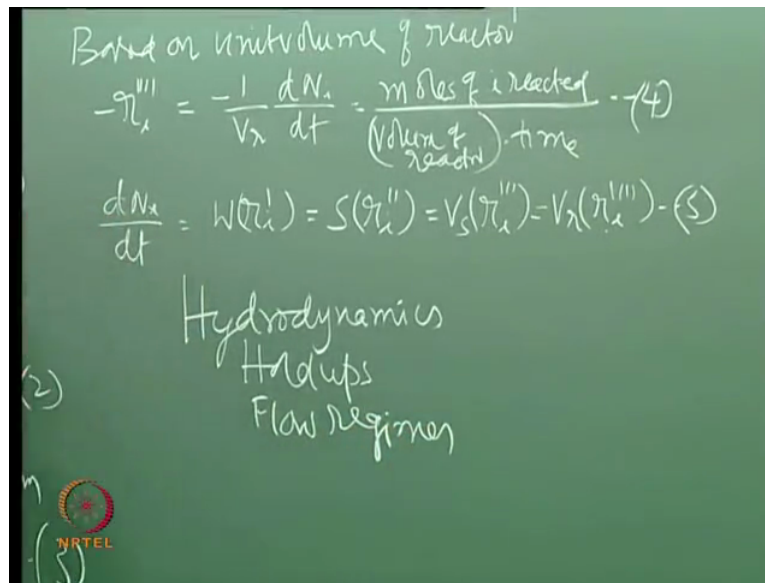 Based on unit volume of reactor
-r_i'''' = -1/V_r dN_i/dt = moles of i reacted/(Volume of reactor).time --(4)
dN_i/dt = W(r_i') = S(r_i'') = V_s(r_i''') = V_r(r_i'''') -(5)
Hydrodynamics
Hold ups
Flow regimes
(2)
m
-(3)
NPTEL